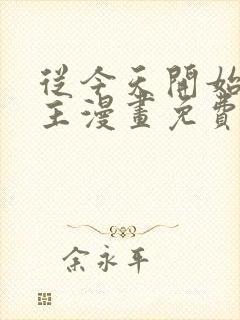 從今天開始
主漫畫免費
余永平